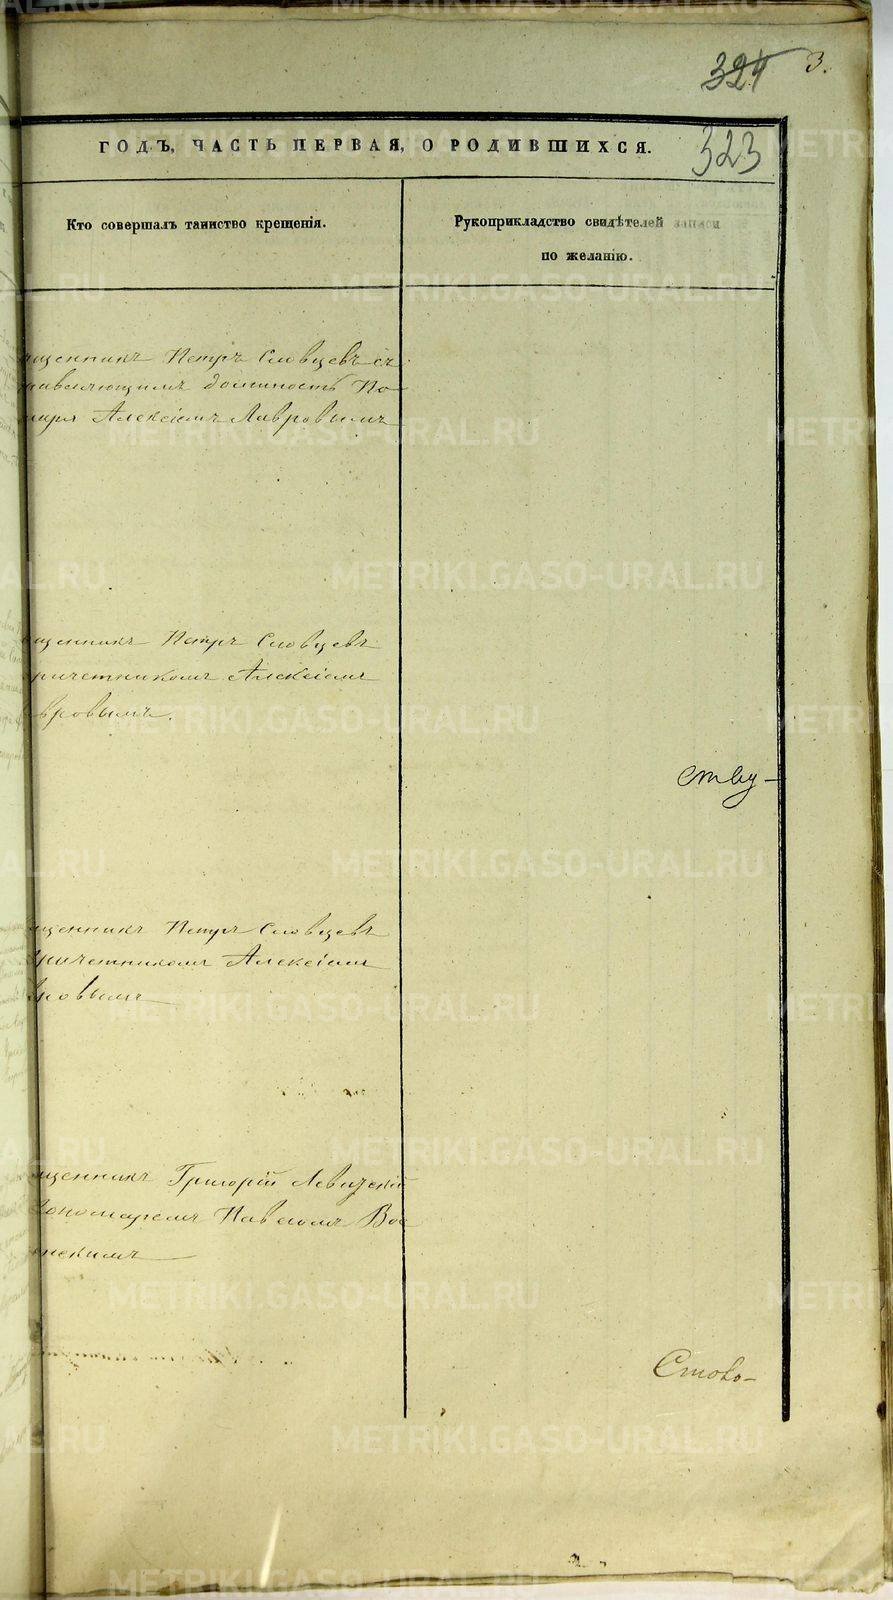 324 3.
323
ГОДЪ, ЧАСТЬ ПЕРВАЯ, О РОДИВШИХСЯ.
Кто совершалъ таинство крещенія.
Рукоприкладство свидѣтелей записи
по желанію.
щенникъ Петръ Словцевъ съ
должность По-
маря Алексіемъ Лавровымъ
щенникъ Петръ Словцевъ
ричетникомъ Алексіемъ
вровымъ.
щенникъ Петръ Словцевъ
ричетникомъ Алексіемъ
ровымъ
щенникъ Григорій Левицкій
Пономаремъ Павломъ Воз-
енскимъ
METRIKI.GASO-URAL.RU